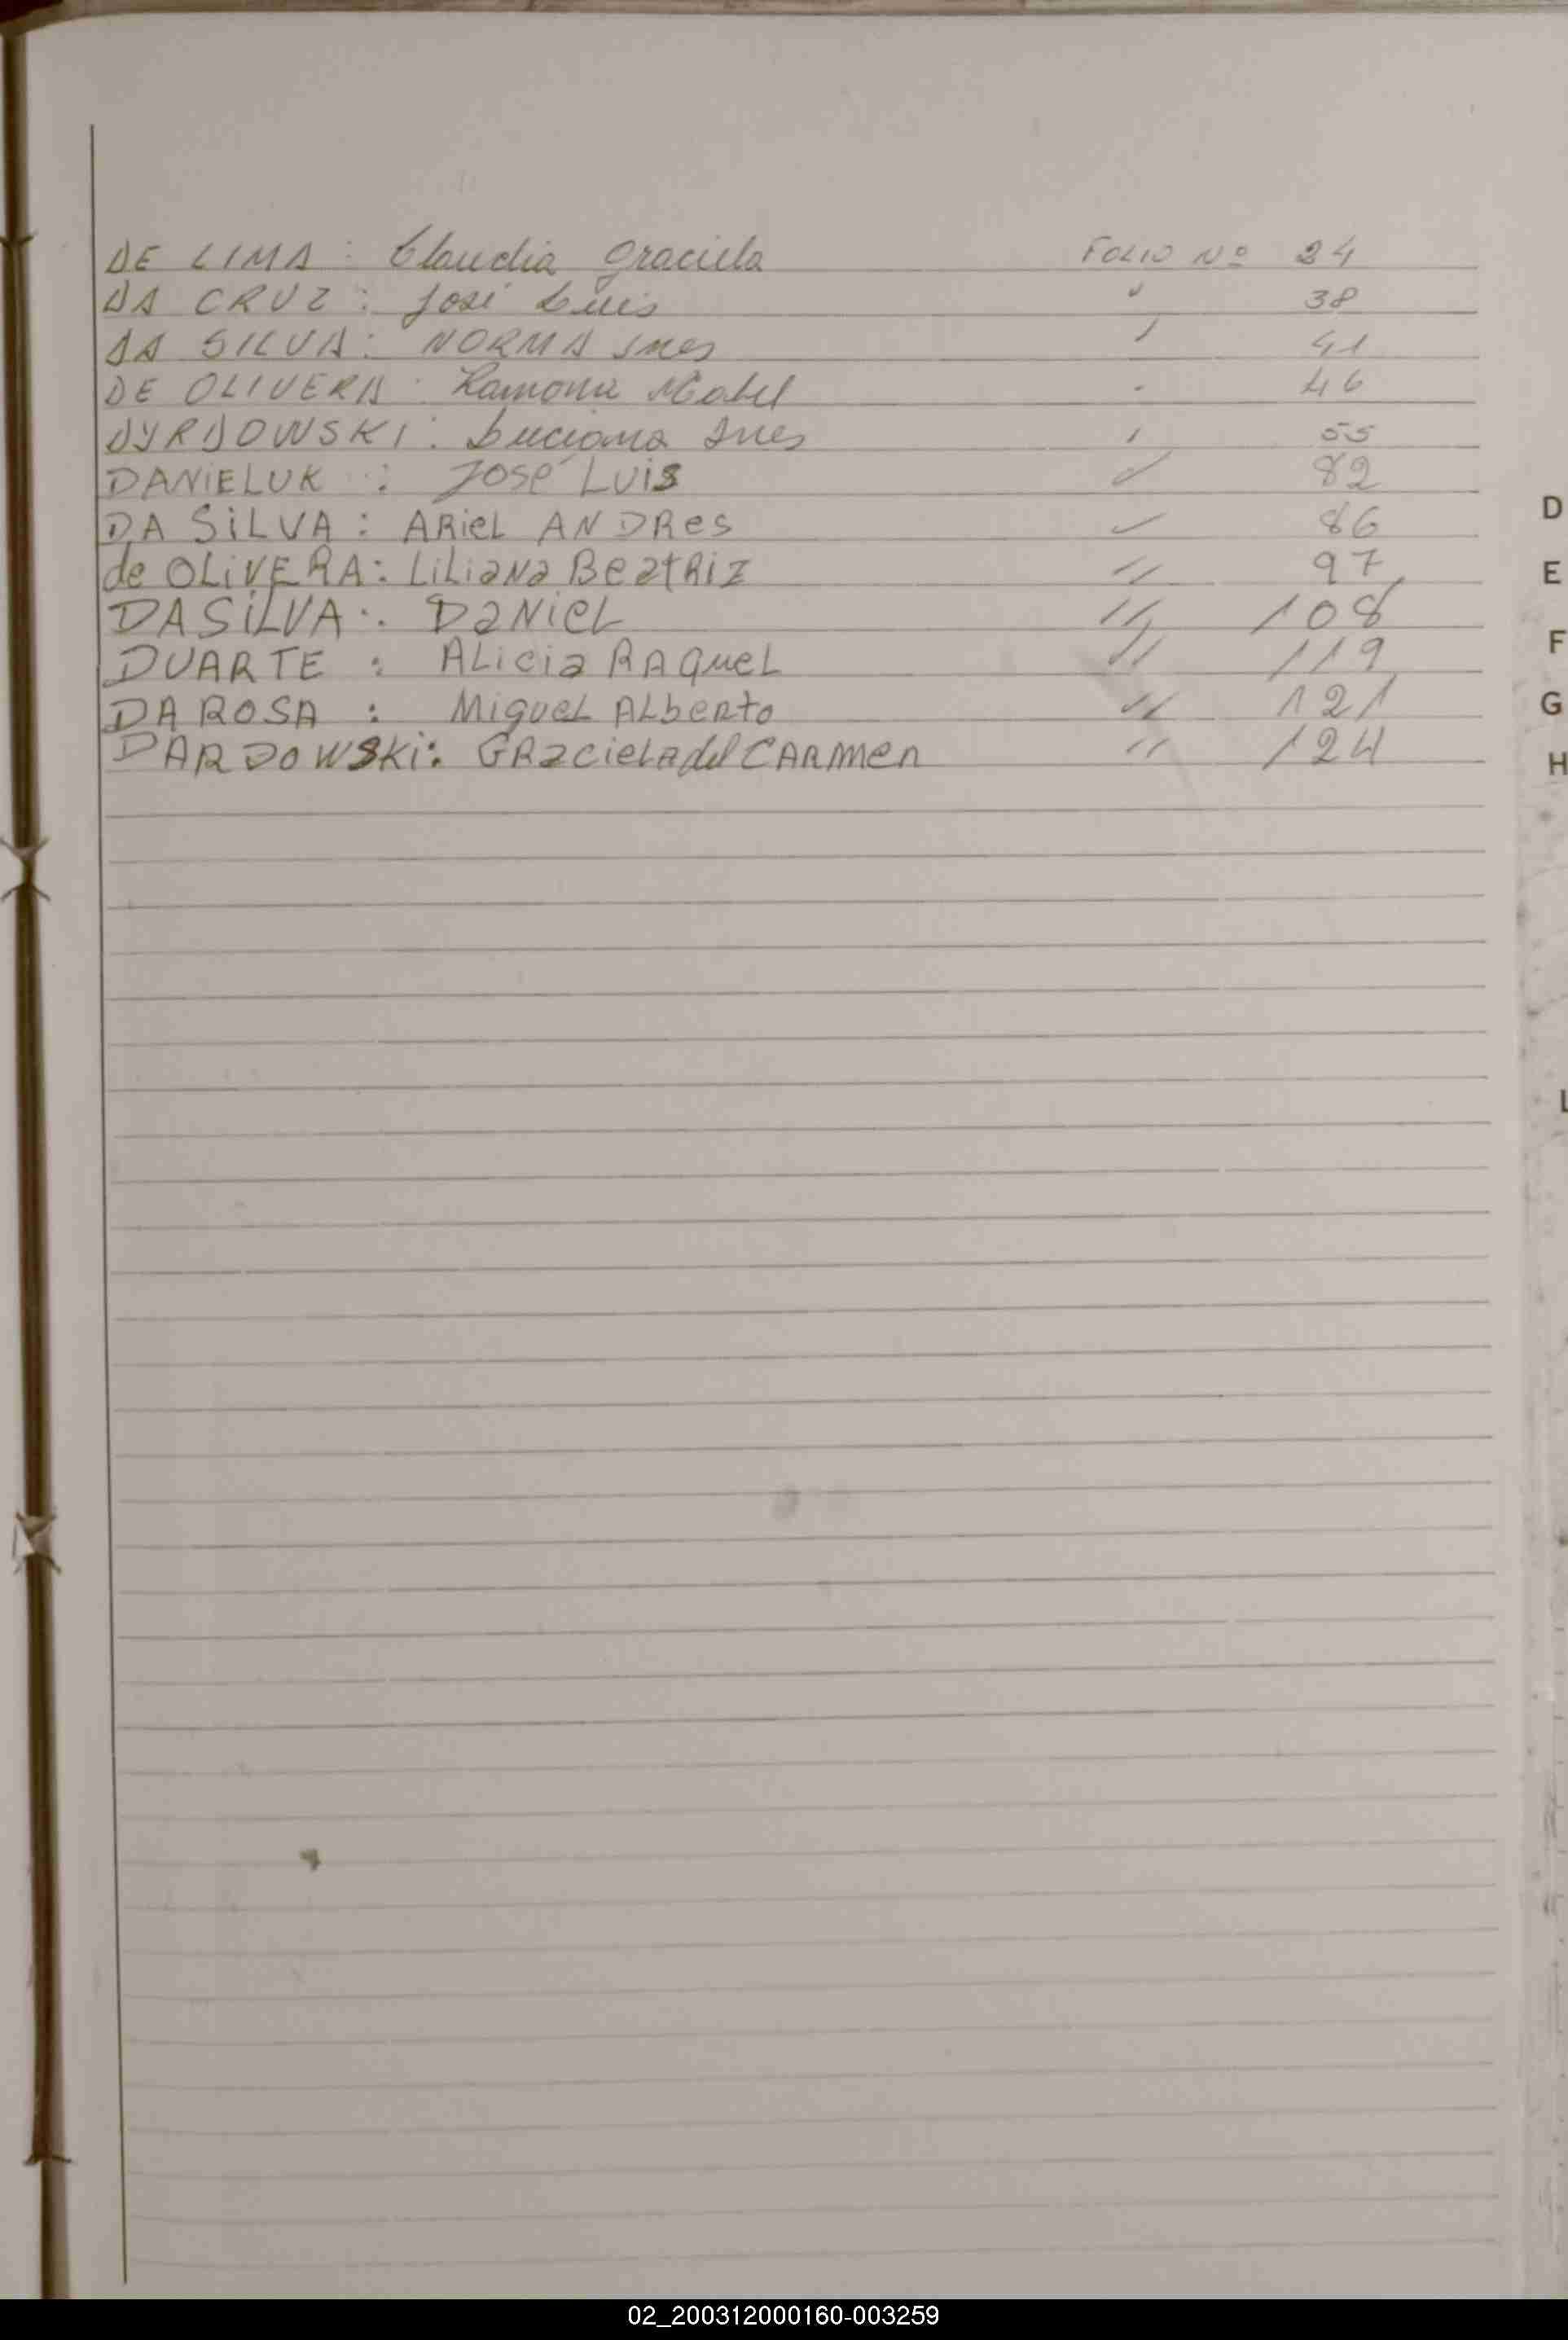 DE LIMA : Claudia Graciela FOLIO Nº 24
DA CRUZ : José Luis " 38
DA SILVA : NORMA Ines " 41
DE OLIVERA : Ramona Mabel " 46
DYRDOWSKI : Luciana Ines " 55
DANIELUK : José Luis " 82
DA SiLVA : ARieL ANDRes " 86
de OLiVERA : LiLiana BeatRiz " 97
DASiLVA : DaNieL " 108
DUARTE : ALicia RAQueL " 119
DA ROSA : MigueL ALbeRto " 121
DARDOWSKi : GRacieLA del CARMen " 124
D
E
F
G
H
L
02_200312000160-003259